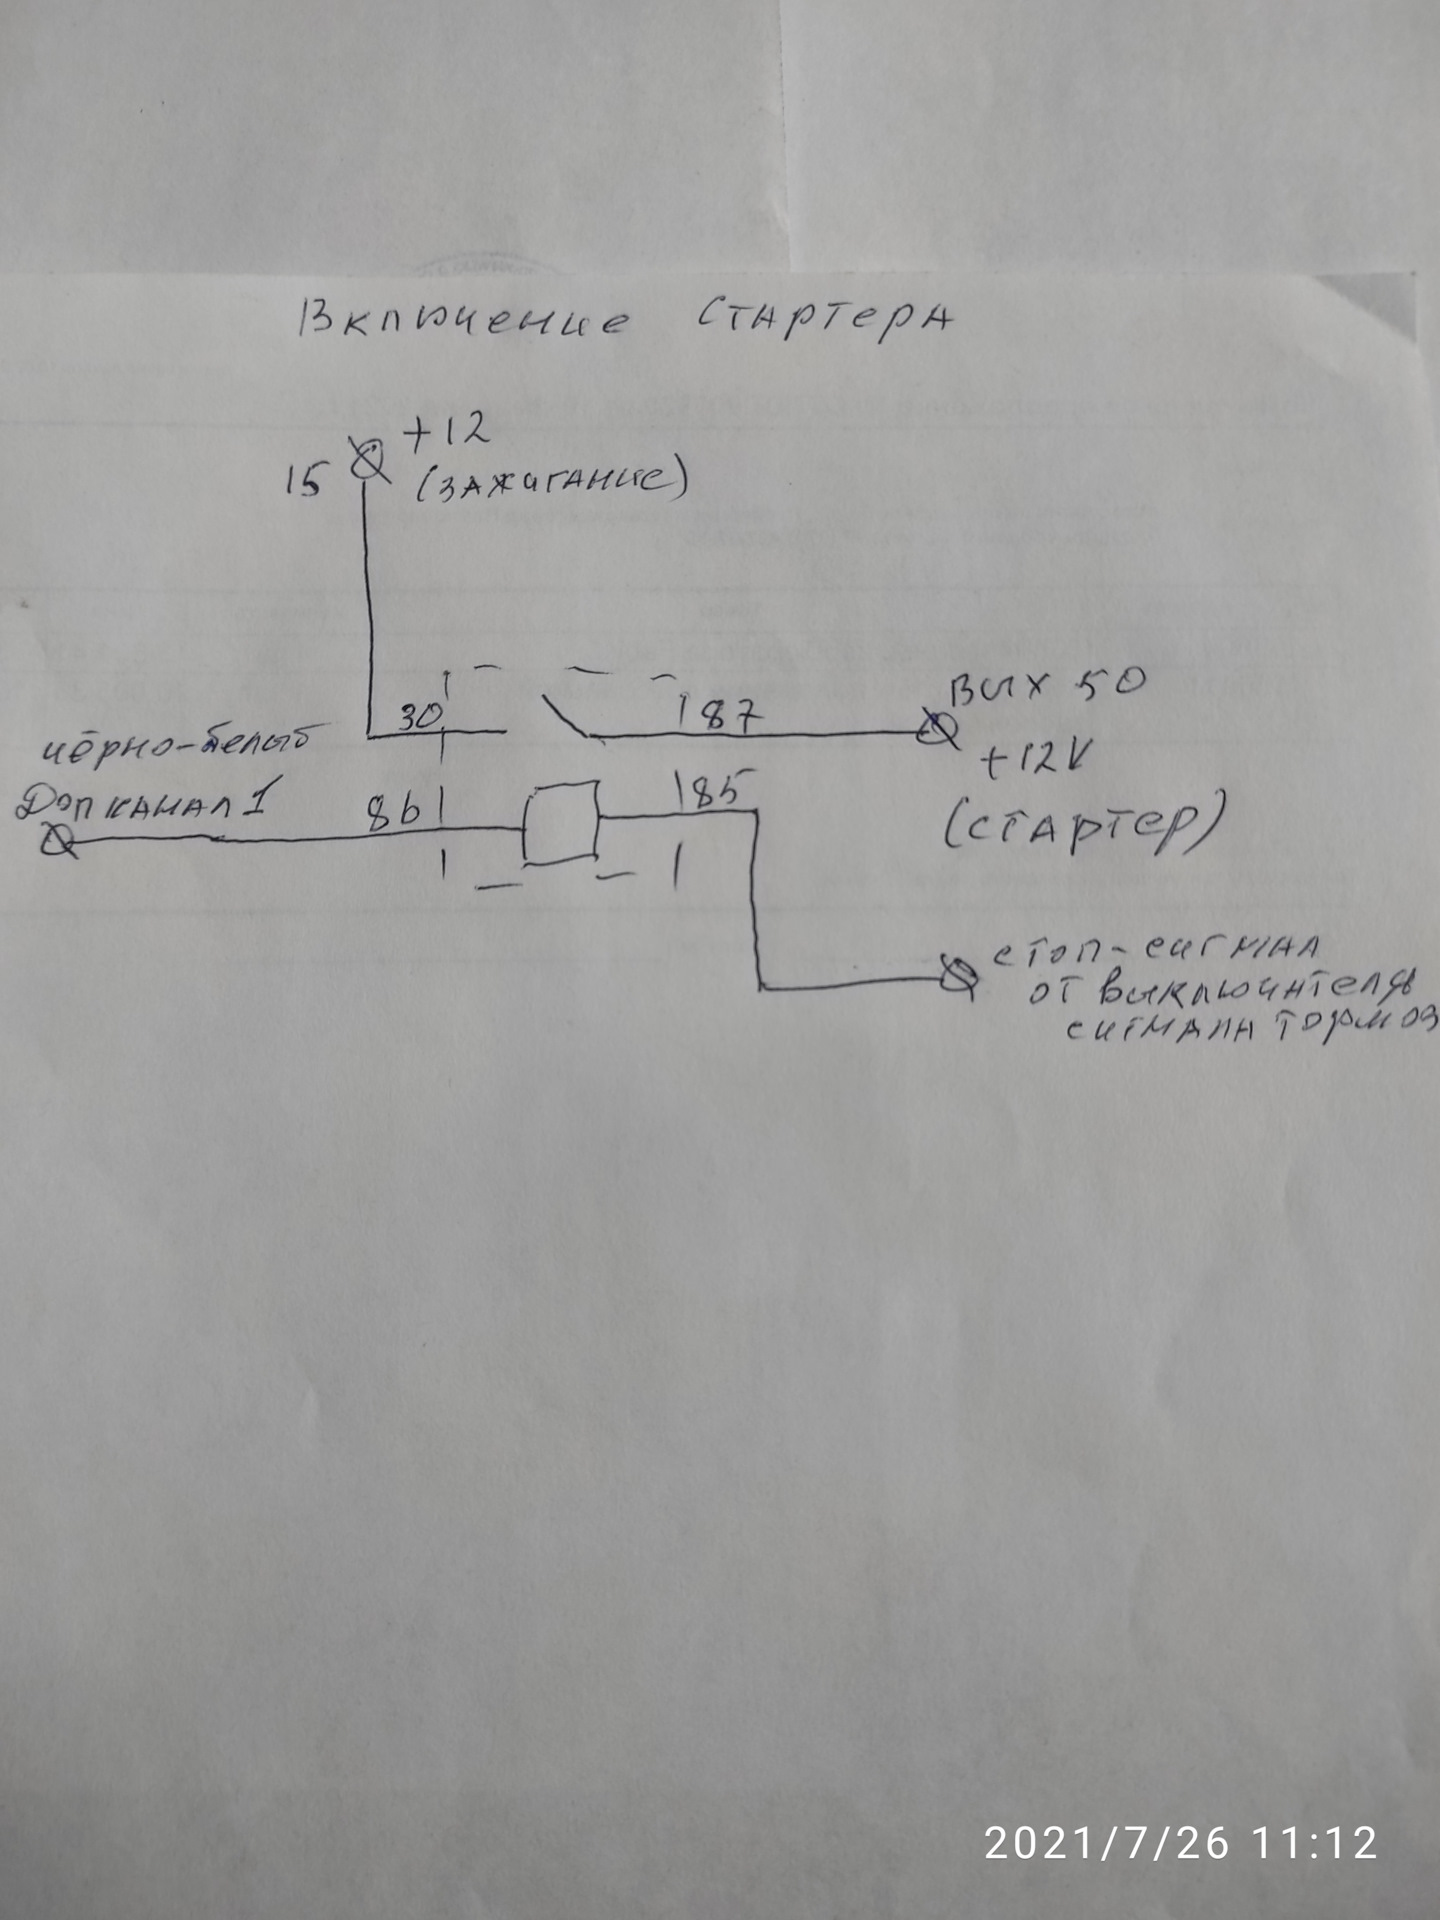 Включение стартера
+12
15 (зажигание)
30
87
Вых 50
+12V
(стартер)
чёрно-белый
Доп канал 1
86
85
стоп-сигнал
от выключителя
сигнала тормоз
2021/7/26 11:12